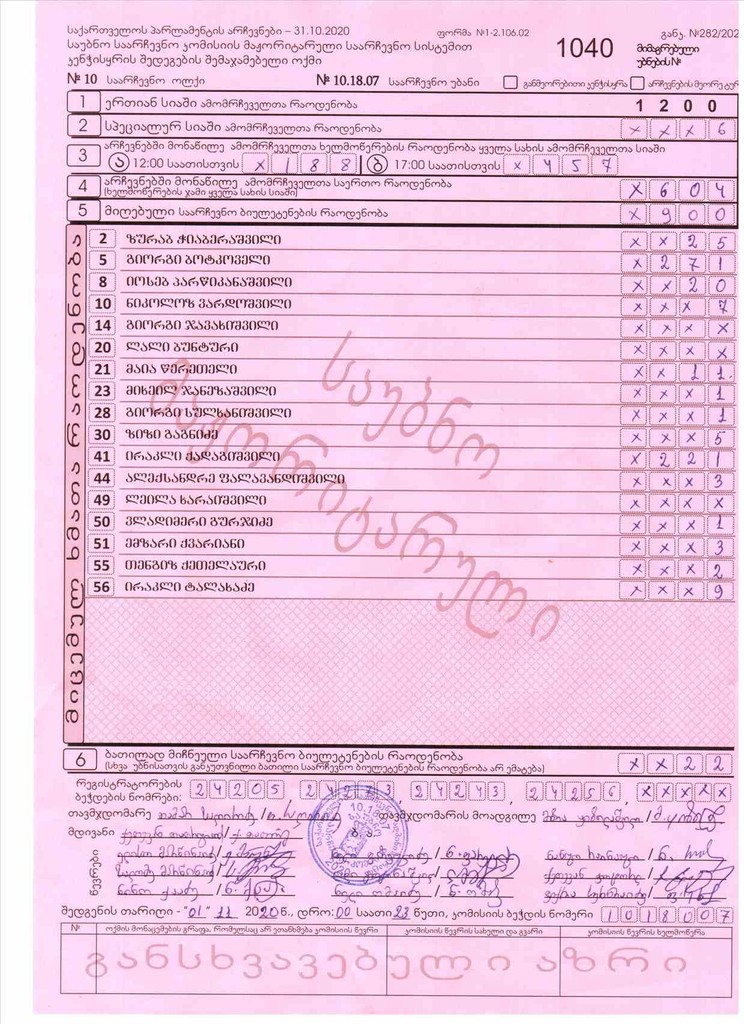 საქართველოს პარლამენტის არჩევნები – 31.10.2020 ფორმა №1-2.106.02 განკ. №282/202
საუბნო საარჩევნო კომისიის მაჟორიტარული საარჩევნო სისტემით 1040 მიმაგრებული
კენჭისყრის შედეგების შემაჯამებელი ოქმი უბნების№
№ 10 საარჩევნო ოლქი № 10.18.07 საარჩევნო უბანი განმეორებითი კენჭისყრა არჩევნების მეორე ტურ
1 ერთიან სიაში ამომრჩეველთა რაოდენობა 1 2 0 0
2 სპეციალურ სიაში ამომრჩეველთა რაოდენობა x x x 6
3 არჩევნებში მონაწილე ამომრჩეველთა ხელმოწერების რაოდენობა ყველა სახის ამომრჩეველთა სიაში
ა 12:00 საათისთვის x 1 8 8 ბ 17:00 საათისთვის x 4 5 7
4 არჩევნებში მონაწილე ამომრჩეველთა საერთო რაოდენობა x 6 0 4
(ხელმოწერების ჯამი ყველა სახის სიაში)
5 მიღებული საარჩევნო ბიულეტენების რაოდენობა x 9 0 0
მიცემულ ხმათა რაოდენობა
2 ზურაბ ჭიაბერაშვილი x x 2 5
5 გიორგი ბოტკოველი x 2 7 1
8 იოსებ პარწიკანაშვილი x x 2 0
10 ნიკოლოზ ვარდოშვილი x x x 7
14 გიორგი ჯავახიშვილი x x x x
20 ლალი ბუნტური x x x x
21 მაია წერეთელი x x 1 1
23 მიხეილ ჯანეზაშვილი x x x 1
28 გიორგი სულხანიშვილი x x x 1
30 ზიზი გაგნიძე x x x 5
41 ირაკლი ქადაგიშვილი x 2 2 1
44 ალექსანდრე ფალავანდიშვილი x x x 3
49 ლეილა ხარაიშვილი x x x x
50 ვლადიმერი გურჯიძე x x x 1
51 ემზარი ქვარიანი x x x 3
55 თენგიზ ქეთელაური x x x 2
56 ირაკლი ტალახაძე x x x 9
საუბნო
მაჟორიტარული
6 ბათილად მიჩნეული საარჩევნო ბიულეტენების რაოდენობა x x 2 2
(სხვა უბნისათვის განკუთვნილი ბათილი საარჩევნო ბიულეტენების რაოდენობა არ ემატება)
რეგისტრატორების
ბეჭდების ნომრები: 2 4 2 0 5 2 4 2 7 3 2 4 2 4 3 2 4 2 5 6 x x x x x
თავმჯდომარე თავმჯდომარის მოადგილე
მდივანი ბ. ა.
წევრები
შედგენის თარიღი - "01" 11 2020წ., დრო: 00 საათი 23 წუთი, კომისიის ბეჭდის ნომერი 1 0 1 8 0 0 7
№ ოქმის მონაცემების გრაფა, რომელსაც არ ეთანხმება კომისიის წევრი კომისიის წევრის სახელი და გვარი კომისიის წევრის ხელმოწერა
განსხვავებული აზრი